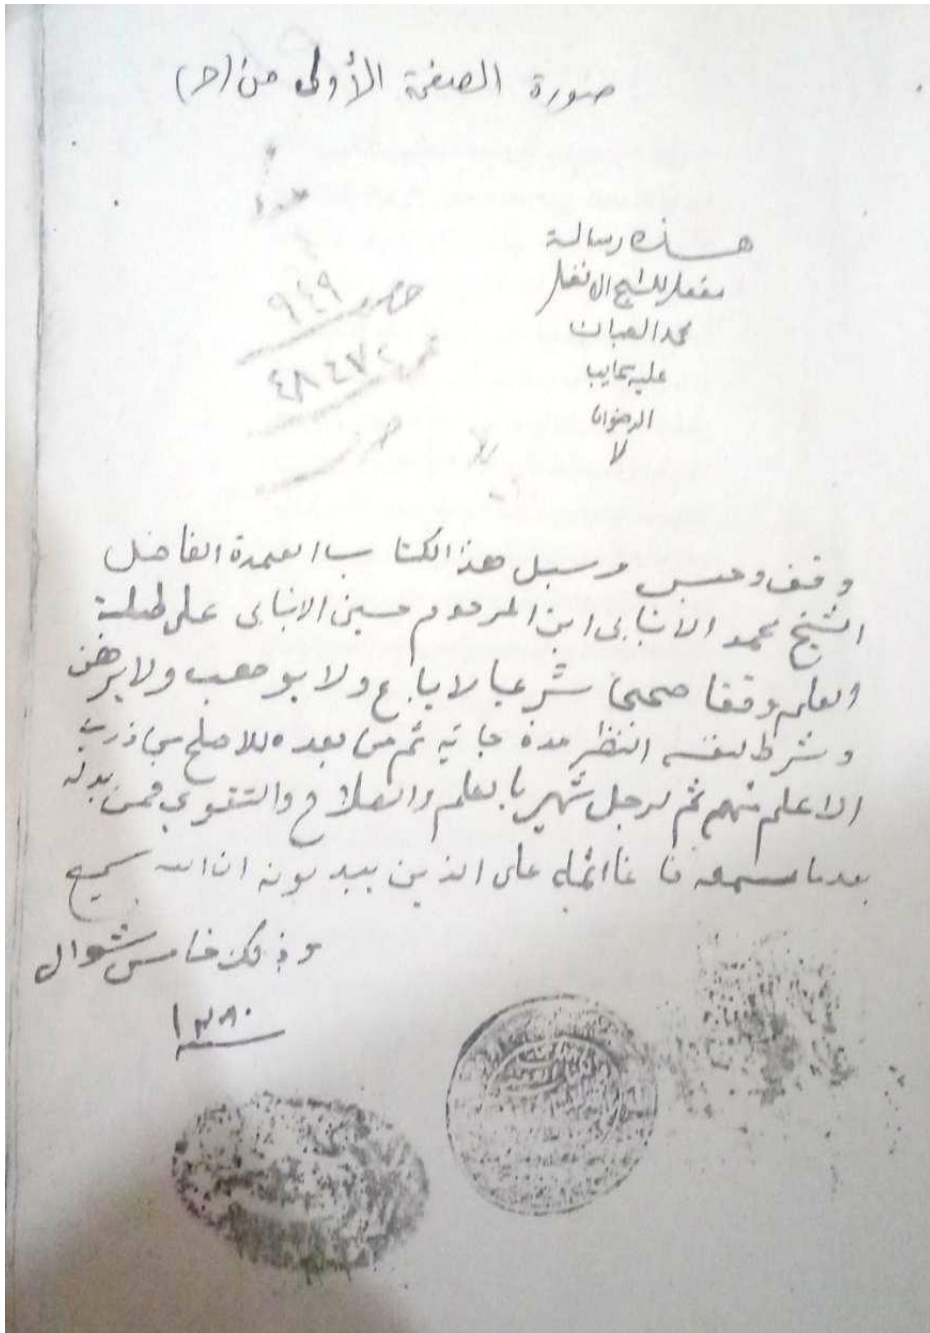 صورة الصفحة الأولى من (ح)
هذه رسالة
مفعل للشيخ الا
محمد الصبان
عليه سحايب
الرضوان
لا
خصوصية
٩٤٩
٤٨٤٧٢
وقف وحبس وسبل هذا الكتاب العمدة الفاضل
الشيخ محمد الانبابى ابن المرحوم حسين الانبابى على طلبة
العلم وقفا صحيحا شرعيا لا يباع ولا يوهب ولا يرهن
وشرط لنفسه النظر مدة حياته ثم من بعده للاصلح من ذريته
الاعلم منهم ثم لرجل شهير بالعلم والصلاح والتقوى فمن بدله
بعدما سمعه فانما اثمه على الذين يبدلونه ان الله سميع
وذلك خامس شوال
سنة ١٢٨٠